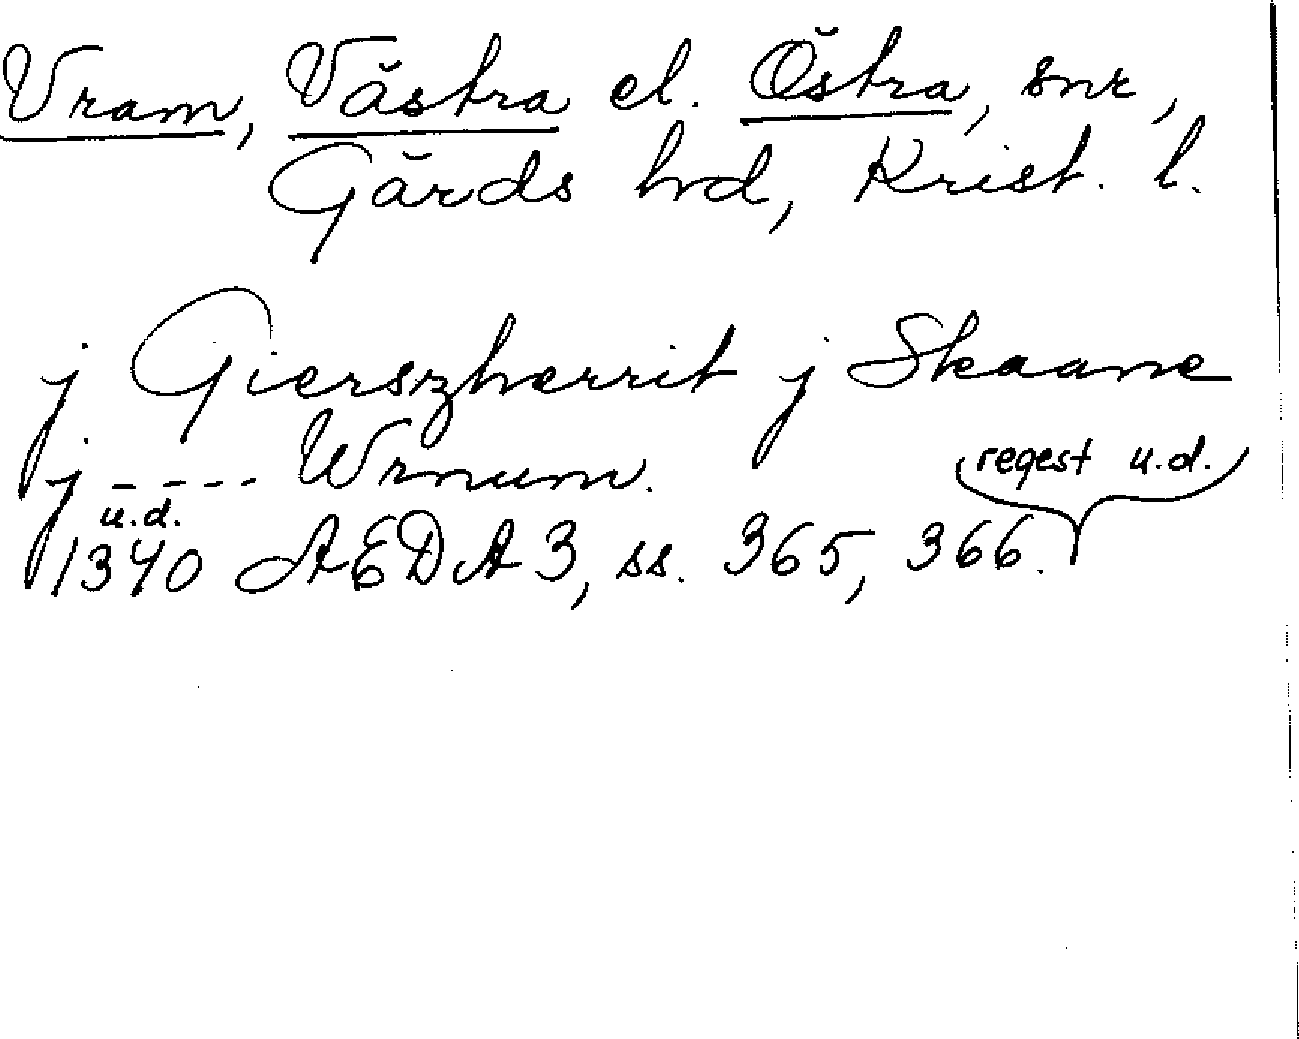 Vram, Västra el. Östra, snr,
Gärds hrd, Krist. l.
j Gierszherrit j Skaane
j ---- Wrnum.
regest u.d.
u.d.
1340 ÆDA 3, ss. 365, 366.